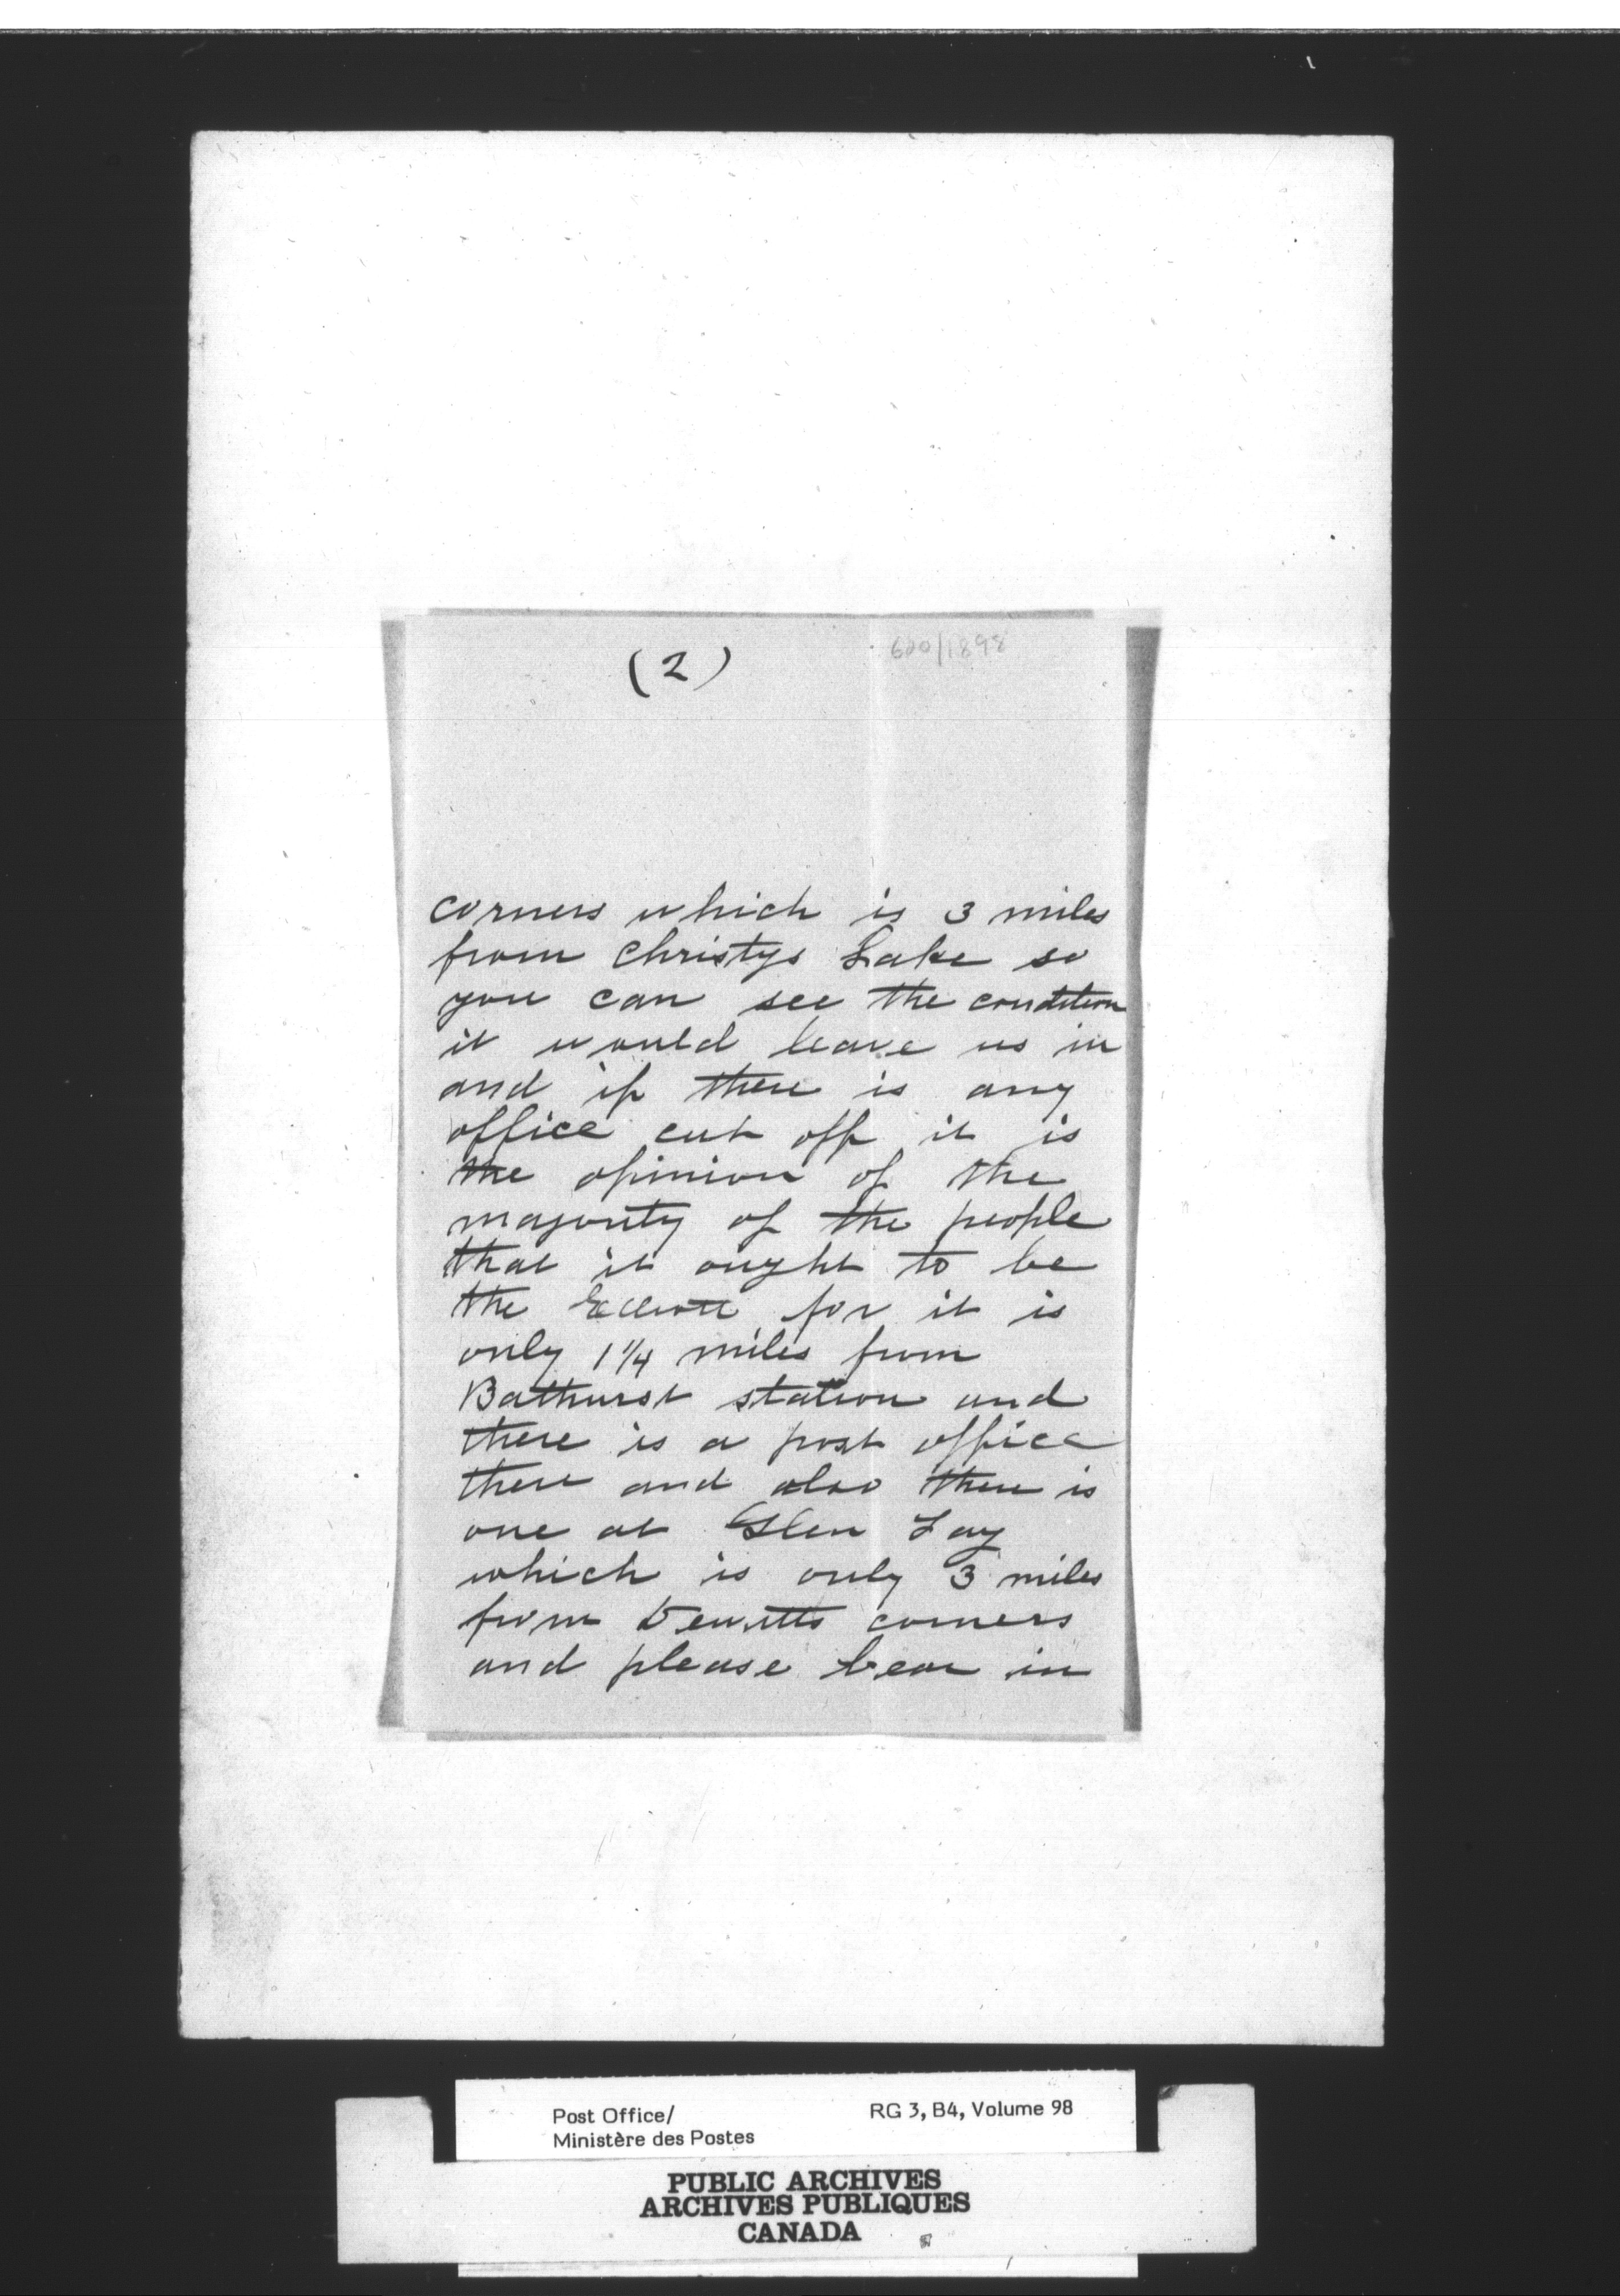 (2)
620/1898
corners which is 3 miles
from Christys Lake so
you can see the condition
it would leave us in
and if there is any
office cut off it is
the opinion of the
majority of the people
that it ought to be
the Elliott for it is
only 1 1/4 miles from
Bathurst station and
there is a post office
there and also there is
one at Glen Tay
which is only 3 miles
from Dewitts corners
and please bear in
Post Office/
Ministère des Postes
RG 3, B4, Volume 98
PUBLIC ARCHIVES
ARCHIVES PUBLIQUES
CANADA